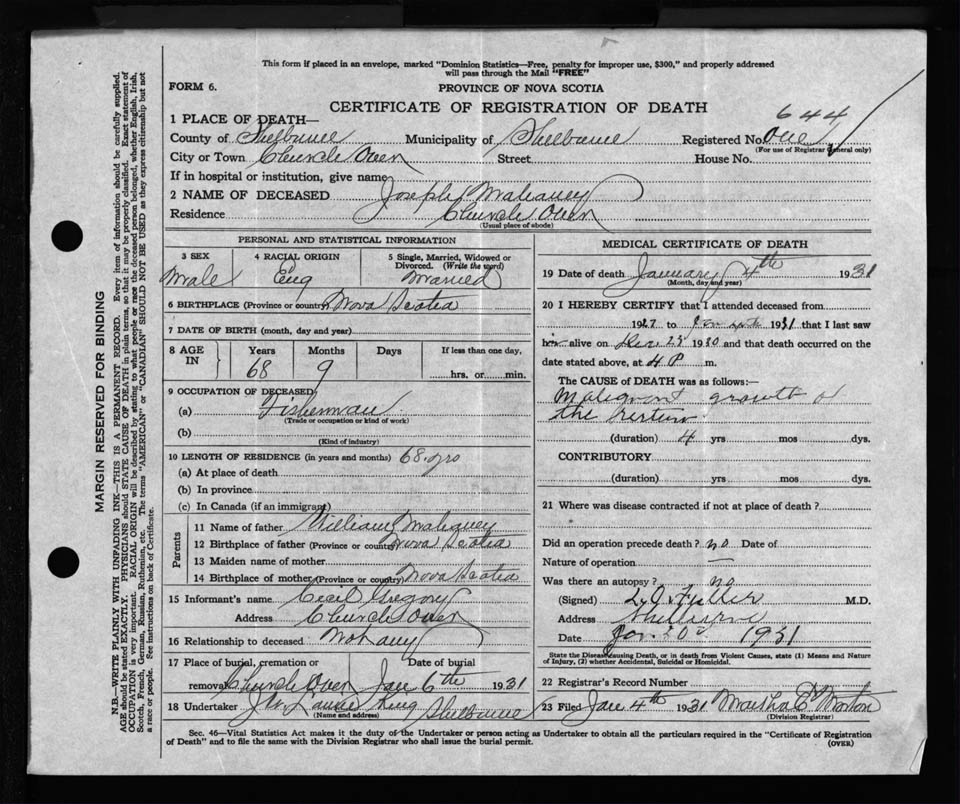 This form if placed in an envelope, marked "Dominion Statistics—Free, penalty for improper use, $300," and properly addressed
will pass through the Mail "FREE"
FORM 6. PROVINCE OF NOVA SCOTIA
CERTIFICATE OF REGISTRATION OF DEATH
644
1 PLACE OF DEATH—
County of Shelburne Municipality of Shelburne Registered No. One
(For use of Registrar General only)
City or Town Churchover Street House No.
If in hospital or institution, give name
2 NAME OF DECEASED Joseph Mahaney
Residence Churchover
(Usual place of abode)
PERSONAL AND STATISTICAL INFORMATION
3 SEX 4 RACIAL ORIGIN 5 Single, Married, Widowed or
Divorced. (Write the word)
Male Eng Married
6 BIRTHPLACE (Province or country) Nova Scotia
7 DATE OF BIRTH (month, day and year)
8 AGE IN Years Months Days If less than one day,
68 9 hrs. or min.
9 OCCUPATION OF DECEASED
(a) Fisherman
(Trade or occupation or kind of work)
(b)
(Kind of industry)
10 LENGTH OF RESIDENCE (in years and months) 68 yrs
(a) At place of death
(b) In province
(c) In Canada (if an immigrant)
Parents
11 Name of father William Mahaney
12 Birthplace of father (Province or country) Nova Scotia
13 Maiden name of mother
14 Birthplace of mother (Province or country) Nova Scotia
15 Informant's name Cecil Gregory
Address Churchover
16 Relationship to deceased
17 Place of burial, cremation or Date of burial
removal Churchover Jan 6th 1931
18 Undertaker King Shelburne
(Name and address)
MEDICAL CERTIFICATE OF DEATH
19 Date of death January 4th 1931
(Month, day and year)
20 I HEREBY CERTIFY that I attended deceased from
1927 to Jan 4th 1931 that I last saw
him alive on Dec 23 1930 and that death occurred on the
date stated above, at 4 P m.
The CAUSE OF DEATH was as follows:—
Malignant growth of
the rectum
(duration) 4 yrs mos dys.
CONTRIBUTORY
(duration) yrs mos dys.
21 Where was disease contracted if not at place of death?
Did an operation precede death? no Date of
Nature of operation —
Was there an autopsy? no
(Signed) Fuller M.D.
Address Shelburne
Date Jan 1931
State the Disease causing Death, or in death from Violent Causes, state (1) Means and Nature
of Injury, (2) whether Accidental, Suicidal or Homicidal.
22 Registrar's Record Number
23 Filed Jan 4th 1931 Martha E Morton
(Division Registrar)
Sec. 46—Vital Statistics Act makes it the duty of the Undertaker or person acting as Undertaker to obtain all the particulars required in the "Certificate of Registration
of Death" and to file the same with the Division Registrar who shall issue the burial permit. (OVER)
MARGIN RESERVED FOR BINDING
N.B.—WRITE PLAINLY WITH UNFADING INK—THIS IS A PERMANENT RECORD. Every item of information should be carefully supplied.
AGE should be stated EXACTLY. PHYSICIANS should STATE CAUSE OF DEATH in plain terms, so that it may be properly classified. Exact statement of
OCCUPATION is very important. RACIAL ORIGIN will be described by stating to what people or race the deceased person belonged, whether English, Irish,
Scotch, French, German, Russian, Ruthenian, etc. The terms "AMERICAN" or "CANADIAN" SHOULD NOT BE USED as they express citizenship but not
a race or people. See instructions on back of Certificate.